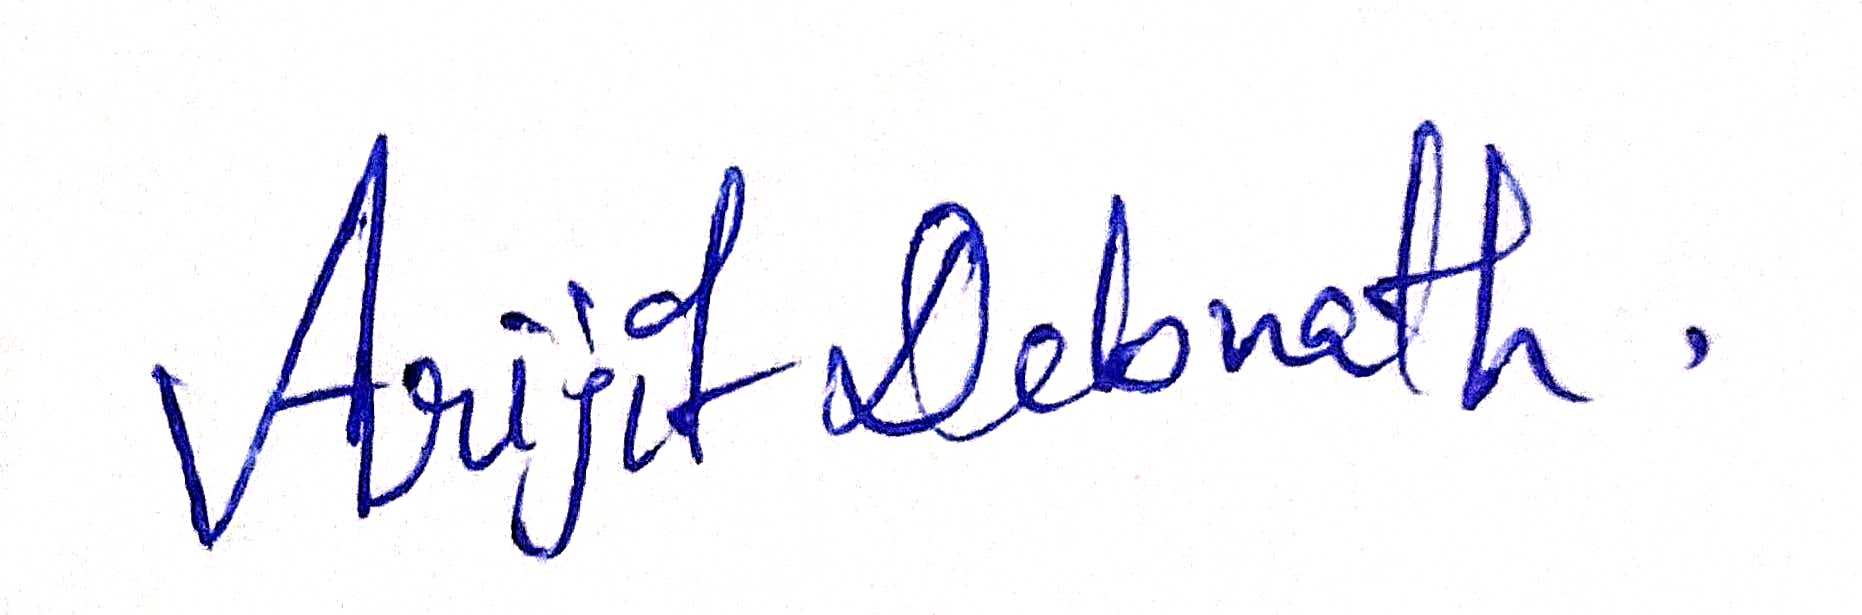 Arijit Debnath.